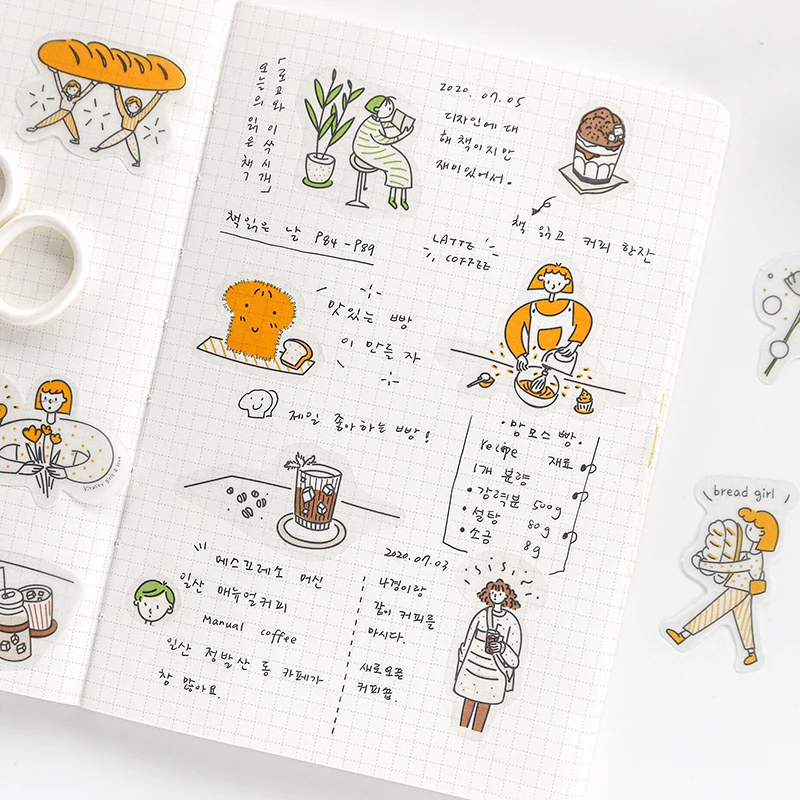 오늘의 읽은 책
「로고와 이쑤시개」
2020. 07. 05
디자인에 대
해 책이지만
재미있어서.
책 읽고 커피 한잔
책읽은 날 P84 -P89
LATTE
COFFEE
맛있는 빵
이 만들 자
제일 좋아하는 빵!
•맘모스 빵•
recipe 재료
1개 분량
•강력분 500g
•설탕 80g
•소금 8g
에스프레소 머신
일산 매뉴얼커피
Manual coffee
일산 정발산 동 카페가
참 많아요.
2020.07.03
나경이랑
같이 커피를
마시다.
새로오픈
커피숍.
bread girl